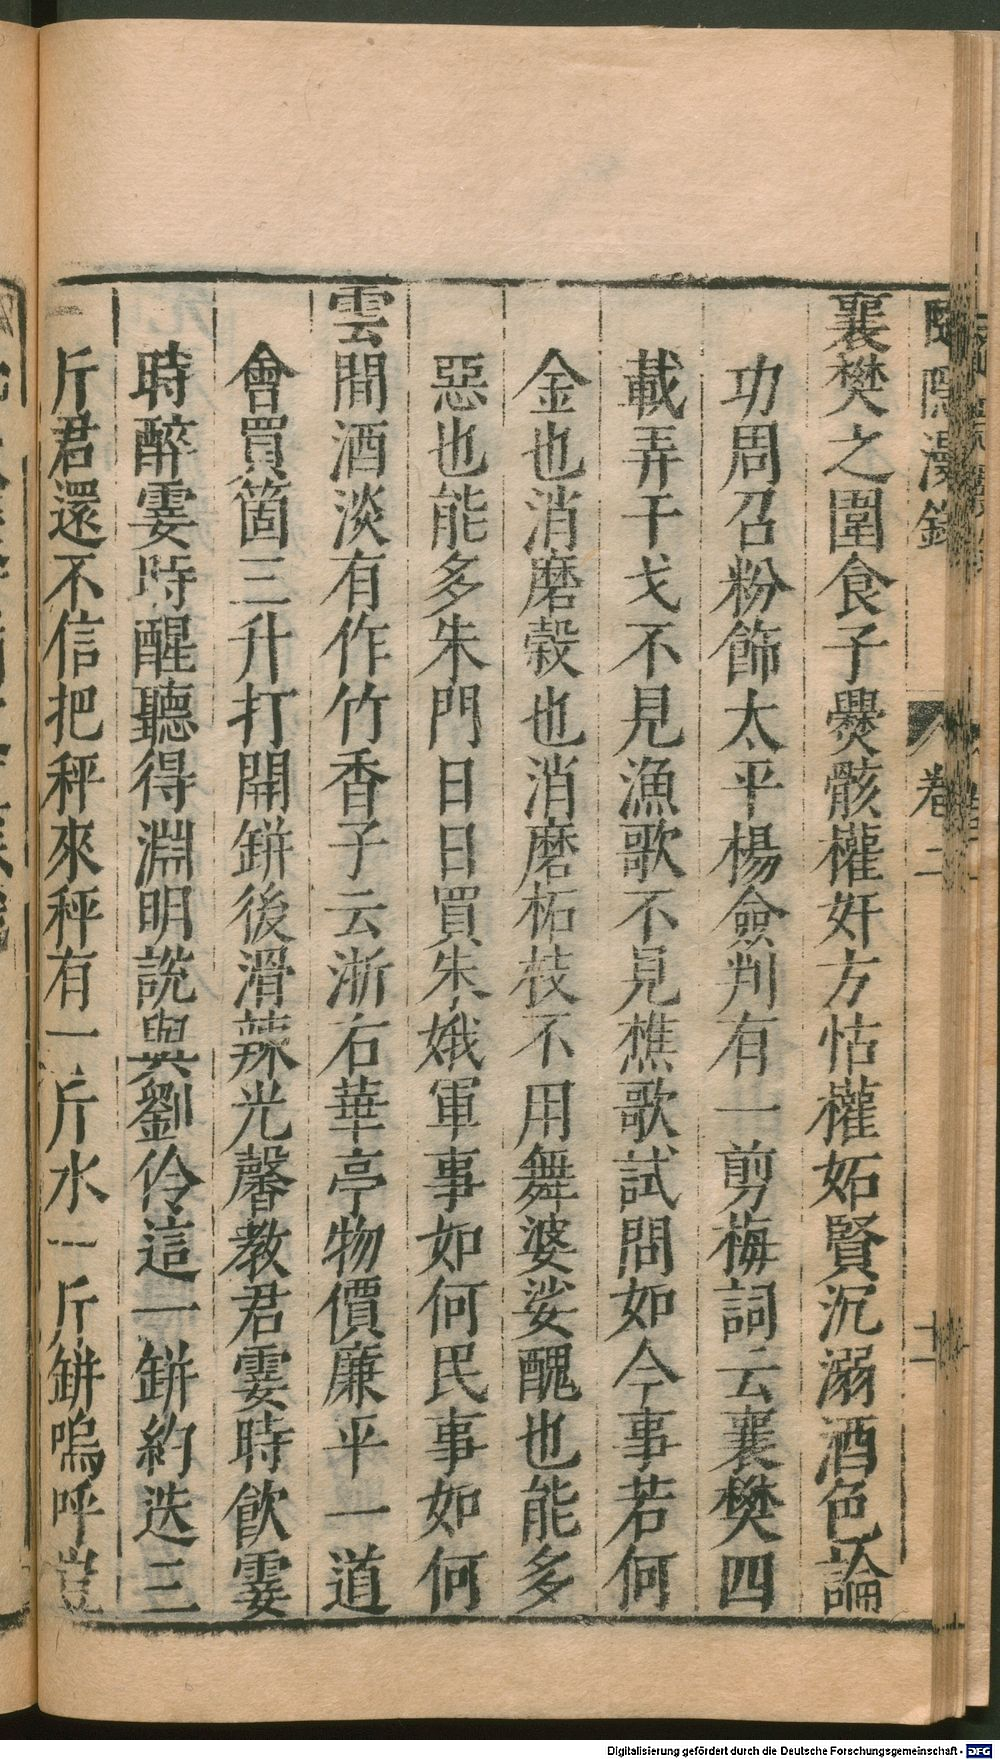 隱漫錄 卷二 二
襄樊之圍食子爨骸權奸方怙權妬賢沉溺酒色論
功周召粉飾太平楊僉判有一剪梅詞云襄樊四
載弄干戈不見漁歌不見樵歌試問如今事若何
金也消磨榖也消磨柘枝不用舞婆娑醜也能多
惡也能多朱門日日買朱娥軍事如何民事如何
雲間酒淡有作竹香子云浙右華亭物價廉平一道
會買箇三升打開缾後滑辣光馨教君霎時飲霎
時醉霎時醒聽得淵明說與劉伶這一缾約迭三
斤君還不信把秤來秤有一斤水一斤缾嗚呼豈
Digitalisierung gefördert durch die Deutsche Forschungsgemeinschaft - DFG